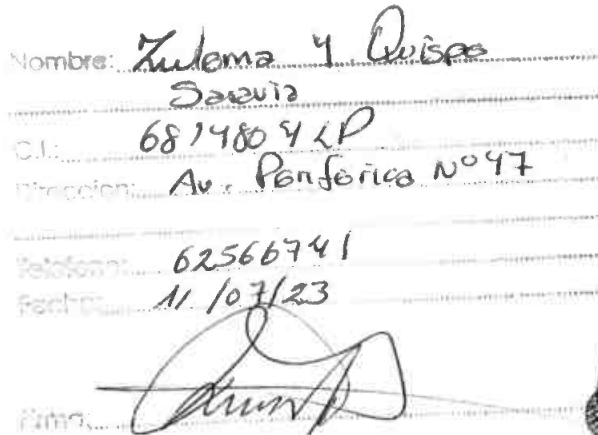 Nombre: Zulema Y Quispe
Saravia
C.I.: 6819804 LP
Dirección: Av. Periférica Nº 47
Teléfono: 62566741
Fecha: 11/07/23
Firma: